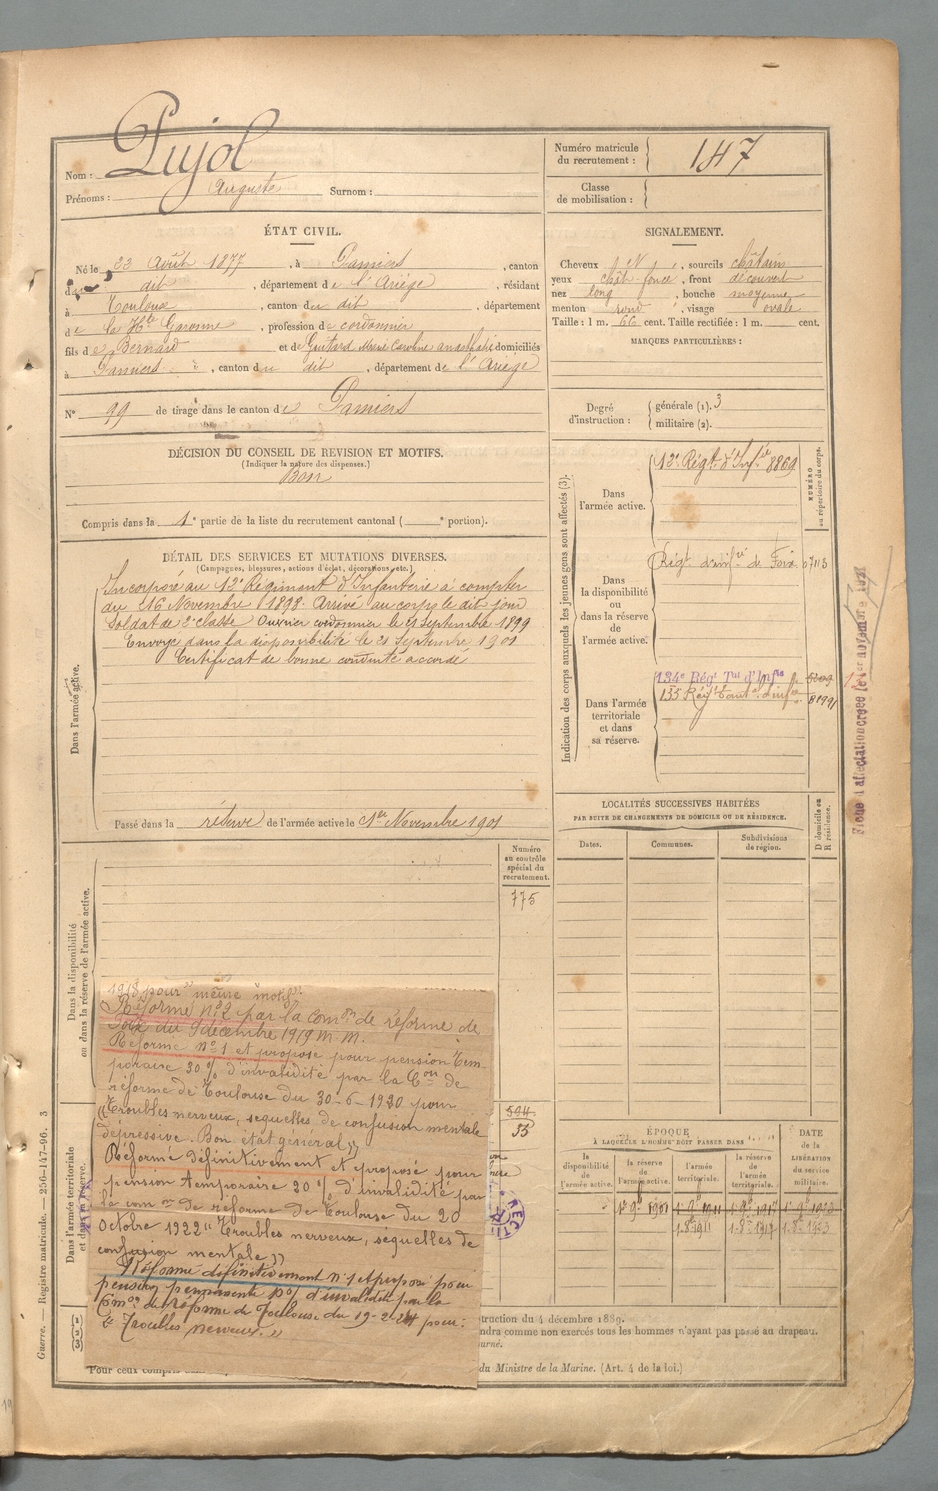 Nom : Pujol
Prénoms : Auguste Surnom :
Numéro matricule
du recrutement : 147
Classe
de mobilisation :
ÉTAT CIVIL.
Né le 23 Août 1877, à Pamiers, canton
du dit, département de l'Ariège, résidant
à Toulouse, canton du dit, département
de la Hte Garonne, profession de cordonnier
fils de Bernard et de Guitard Marie Caroline domiciliés
à Pamiers, canton du dit, département de l'Ariège
N° 99 de tirage dans le canton de Pamiers
SIGNALEMENT.
Cheveux , sourcils châtains
yeux chât. foncé, front découvert
nez long, bouche moyenne
menton rond, visage ovale
Taille : 1 m. 66 cent. Taille rectifiée : 1 m. cent.
MARQUES PARTICULIÈRES :
Degré
d'instruction :
générale (1). 3
militaire (2).
DÉCISION DU CONSEIL DE REVISION ET MOTIFS.
(Indiquer la nature des dispenses.)
Bon
Compris dans la 1e partie de la liste du recrutement cantonal ( e portion).
DÉTAIL DES SERVICES ET MUTATIONS DIVERSES.
(Campagnes, blessures, actions d'éclat, décorations, etc.)
Dans l'armée active.
Incorporé au 12e Régiment d'Infanterie à compter
du 16 Novembre 1898. Arrivé au corps le dit jour
Soldat de 2e classe Ouvrier cordonnier le 21 septembre 1899
Envoyé dans la disponibilité le 21 Septembre 1901
Certificat de bonne conduite accordé
Passé dans la réserve de l'armée active le 1er Novembre 1901
Indication des corps auxquels les jeunes gens sont affectés (3).
NUMÉRO
au répertoire du corps.
Dans
l'armée active.
12e Régt d'Infie 8869
Dans
la disponibilité
ou
dans la réserve
de
l'armée active.
Régt d'infie de Foix 07113
Dans l'armée
territoriale
et dans
sa réserve.
134e Régt Tal d'Infie
135 Régt d'infie
Fiche d'affectation créée le 1er novembre
LOCALITÉS SUCCESSIVES HABITÉES
PAR SUITE DE CHANGEMENTS DE DOMICILE OU DE RÉSIDENCE.
Dates.
Communes.
Subdivisions
de région.
D domicile ou
R résidence.
Dans la disponibilité
ou dans la réserve de l'armée active.
Numéro
au contrôle
spécial du
recrutement.
775
1918 pour même motif
Réforme n°2 par la comon de réforme de
Foix du 9 décembre 1919 M.M.
Réforme n°1 et proposé pour pension tem-
poraire 30 % d'invalidité par la Con de
réforme de Toulouse du 30-6-1920 pour
"Troubles nerveux, sequelles de confusion mentale
dépressive. Bon état general"
Réformé définitivement et proposé pour
pension temporaire 20 % d'invalidité par
la comon de réforme de Toulouse du 20
Octobre 1922 "Troubles nerveux, sequelles de
confusion mentale"
Réforme définitivement n°1 et proposé pour
pension permanente 10 % d'invalidité par la
Comon de réforme de Toulouse du 19-2-24 pour:
"Troubles nerveux."
Dans l'armée territoriale
594
53
ÉPOQUE
À LAQUELLE L'HOMME DOIT PASSER DANS
la
disponibilité
de
l'armée active.
la réserve
de
l'armée active.
l'armée
territoriale.
la réserve
de
l'armée
territoriale.
DATE
de la
LIBÉRATION
du service
militaire.
1er 9bre 1901 1er 9bre 1911 1er 9bre 1917 1er 9bre 1923
1.8bre 1911 1.8bre 1917 1.8bre 1923
struction du 4 décembre 1889.
ndra comme non exercés tous les hommes n'ayant pas passé au drapeau.
urné.
Pour ceux compris dans
du Ministre de la Marine. (Art. 4 de la loi.)
Guerre. — Registre matricule. — 256-147-96. 3